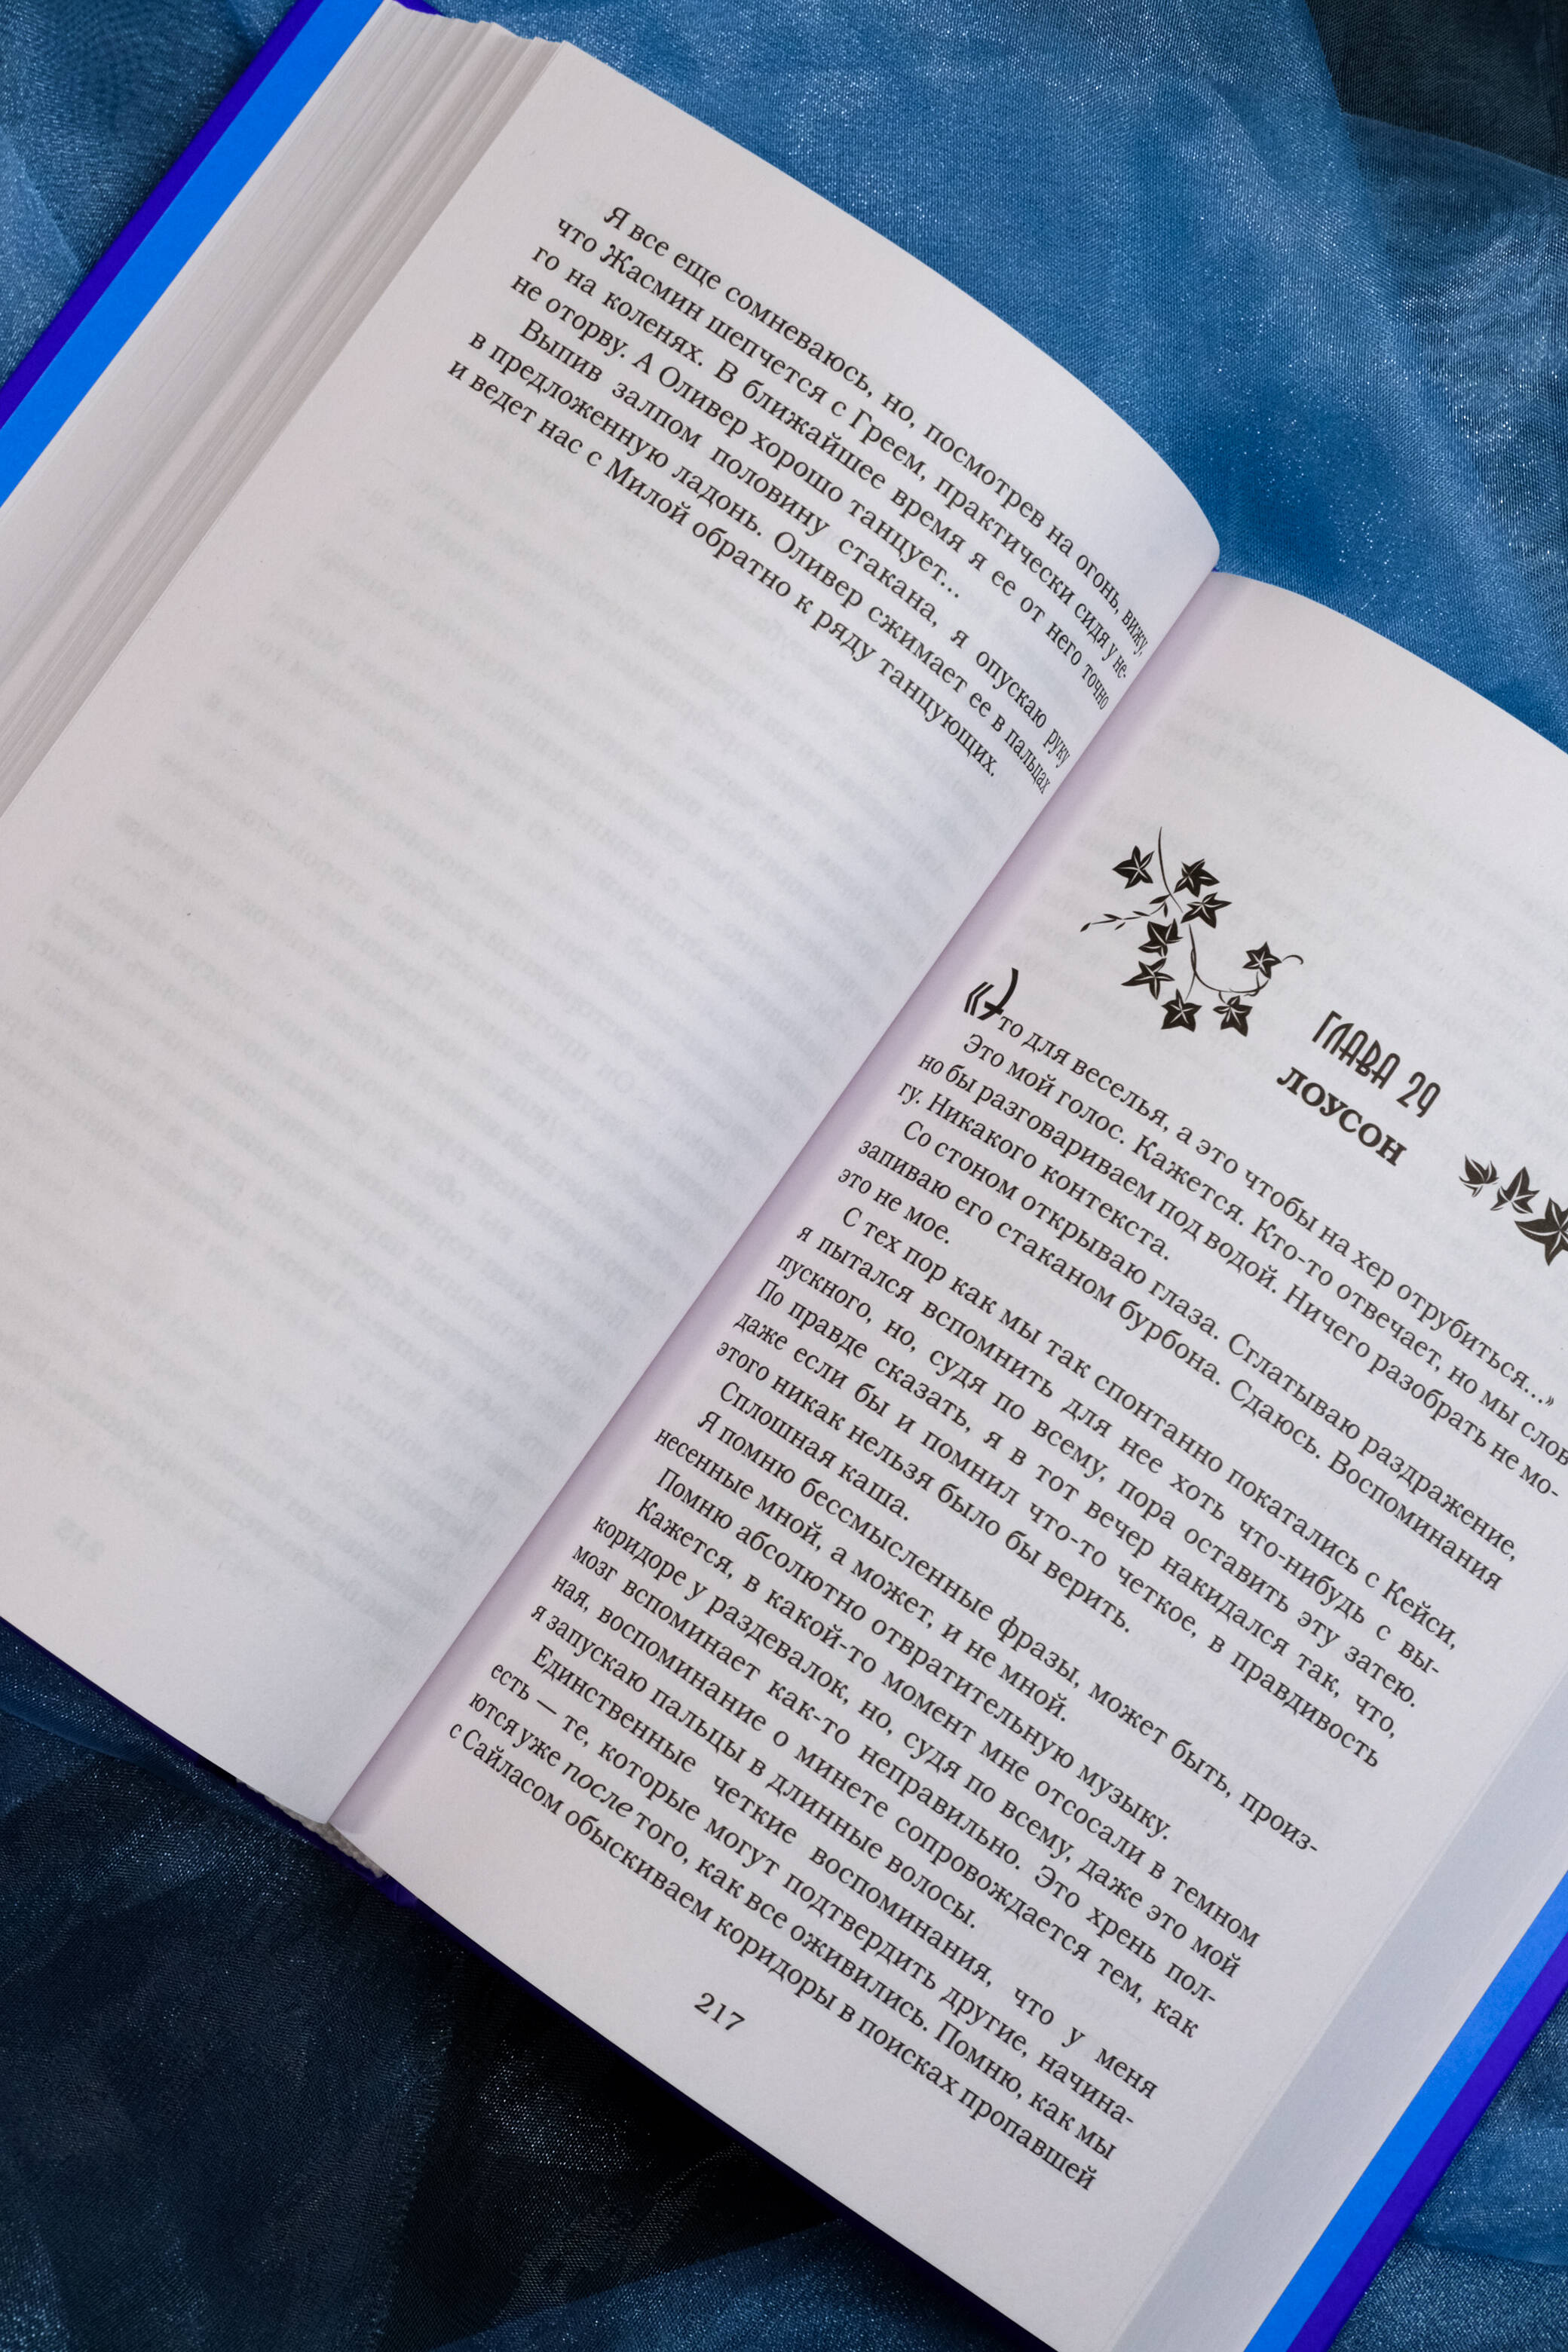 Я все еще сомневаюсь, но, посмотрев на огонь, вижу,
что Жасмин шепчется с Греем, практически сидя у не-
го на коленях. В ближайшее время я ее от него точно
не оторву. А Оливер хорошо танцует...
Выпив залпом половину стакана, я опускаю руку
в предложенную ладонь. Оливер сжимает ее в пальцах
и ведет нас с Милой обратно к ряду танцующих.
ГЛАВА 29
ЛОУСОН
«Это для веселья, а это чтобы на хер отрубиться...»
Это мой голос. Кажется. Кто-то отвечает, но мы слов
но бы разговариваем под водой. Ничего разобрать не мо-
гу. Никакого контекста.
Со стоном открываю глаза. Сглатываю раздражение,
запиваю его стаканом бурбона. Сдаюсь. Воспоминания
это не мое.
С тех пор как мы так спонтанно покатались с Кейси,
я пытался вспомнить для нее хоть что-нибудь с вы-
пускного, но, судя по всему, пора оставить эту затею.
По правде сказать, я в тот вечер накидался так, что,
даже если бы и помнил что-то четкое, в правдивость
этого никак нельзя было бы верить.
Сплошная каша.
Я помню бессмысленные фразы, может быть, произ-
несенные мной, а может, и не мной.
Помню абсолютно отвратительную музыку.
Кажется, в какой-то момент мне отсосали в темном
коридоре у раздевалок, но, судя по всему, даже это мой
мозг вспоминает как-то неправильно. Это хрень пол-
ная, воспоминание о минете сопровождается тем, как
я запускаю пальцы в длинные волосы.
Единственные четкие воспоминания, что у меня
есть — те, которые могут подтвердить другие, начина-
ются уже после того, как все оживились. Помню, как мы
с Сайласом обыскиваем коридоры в поисках пропавшей
217